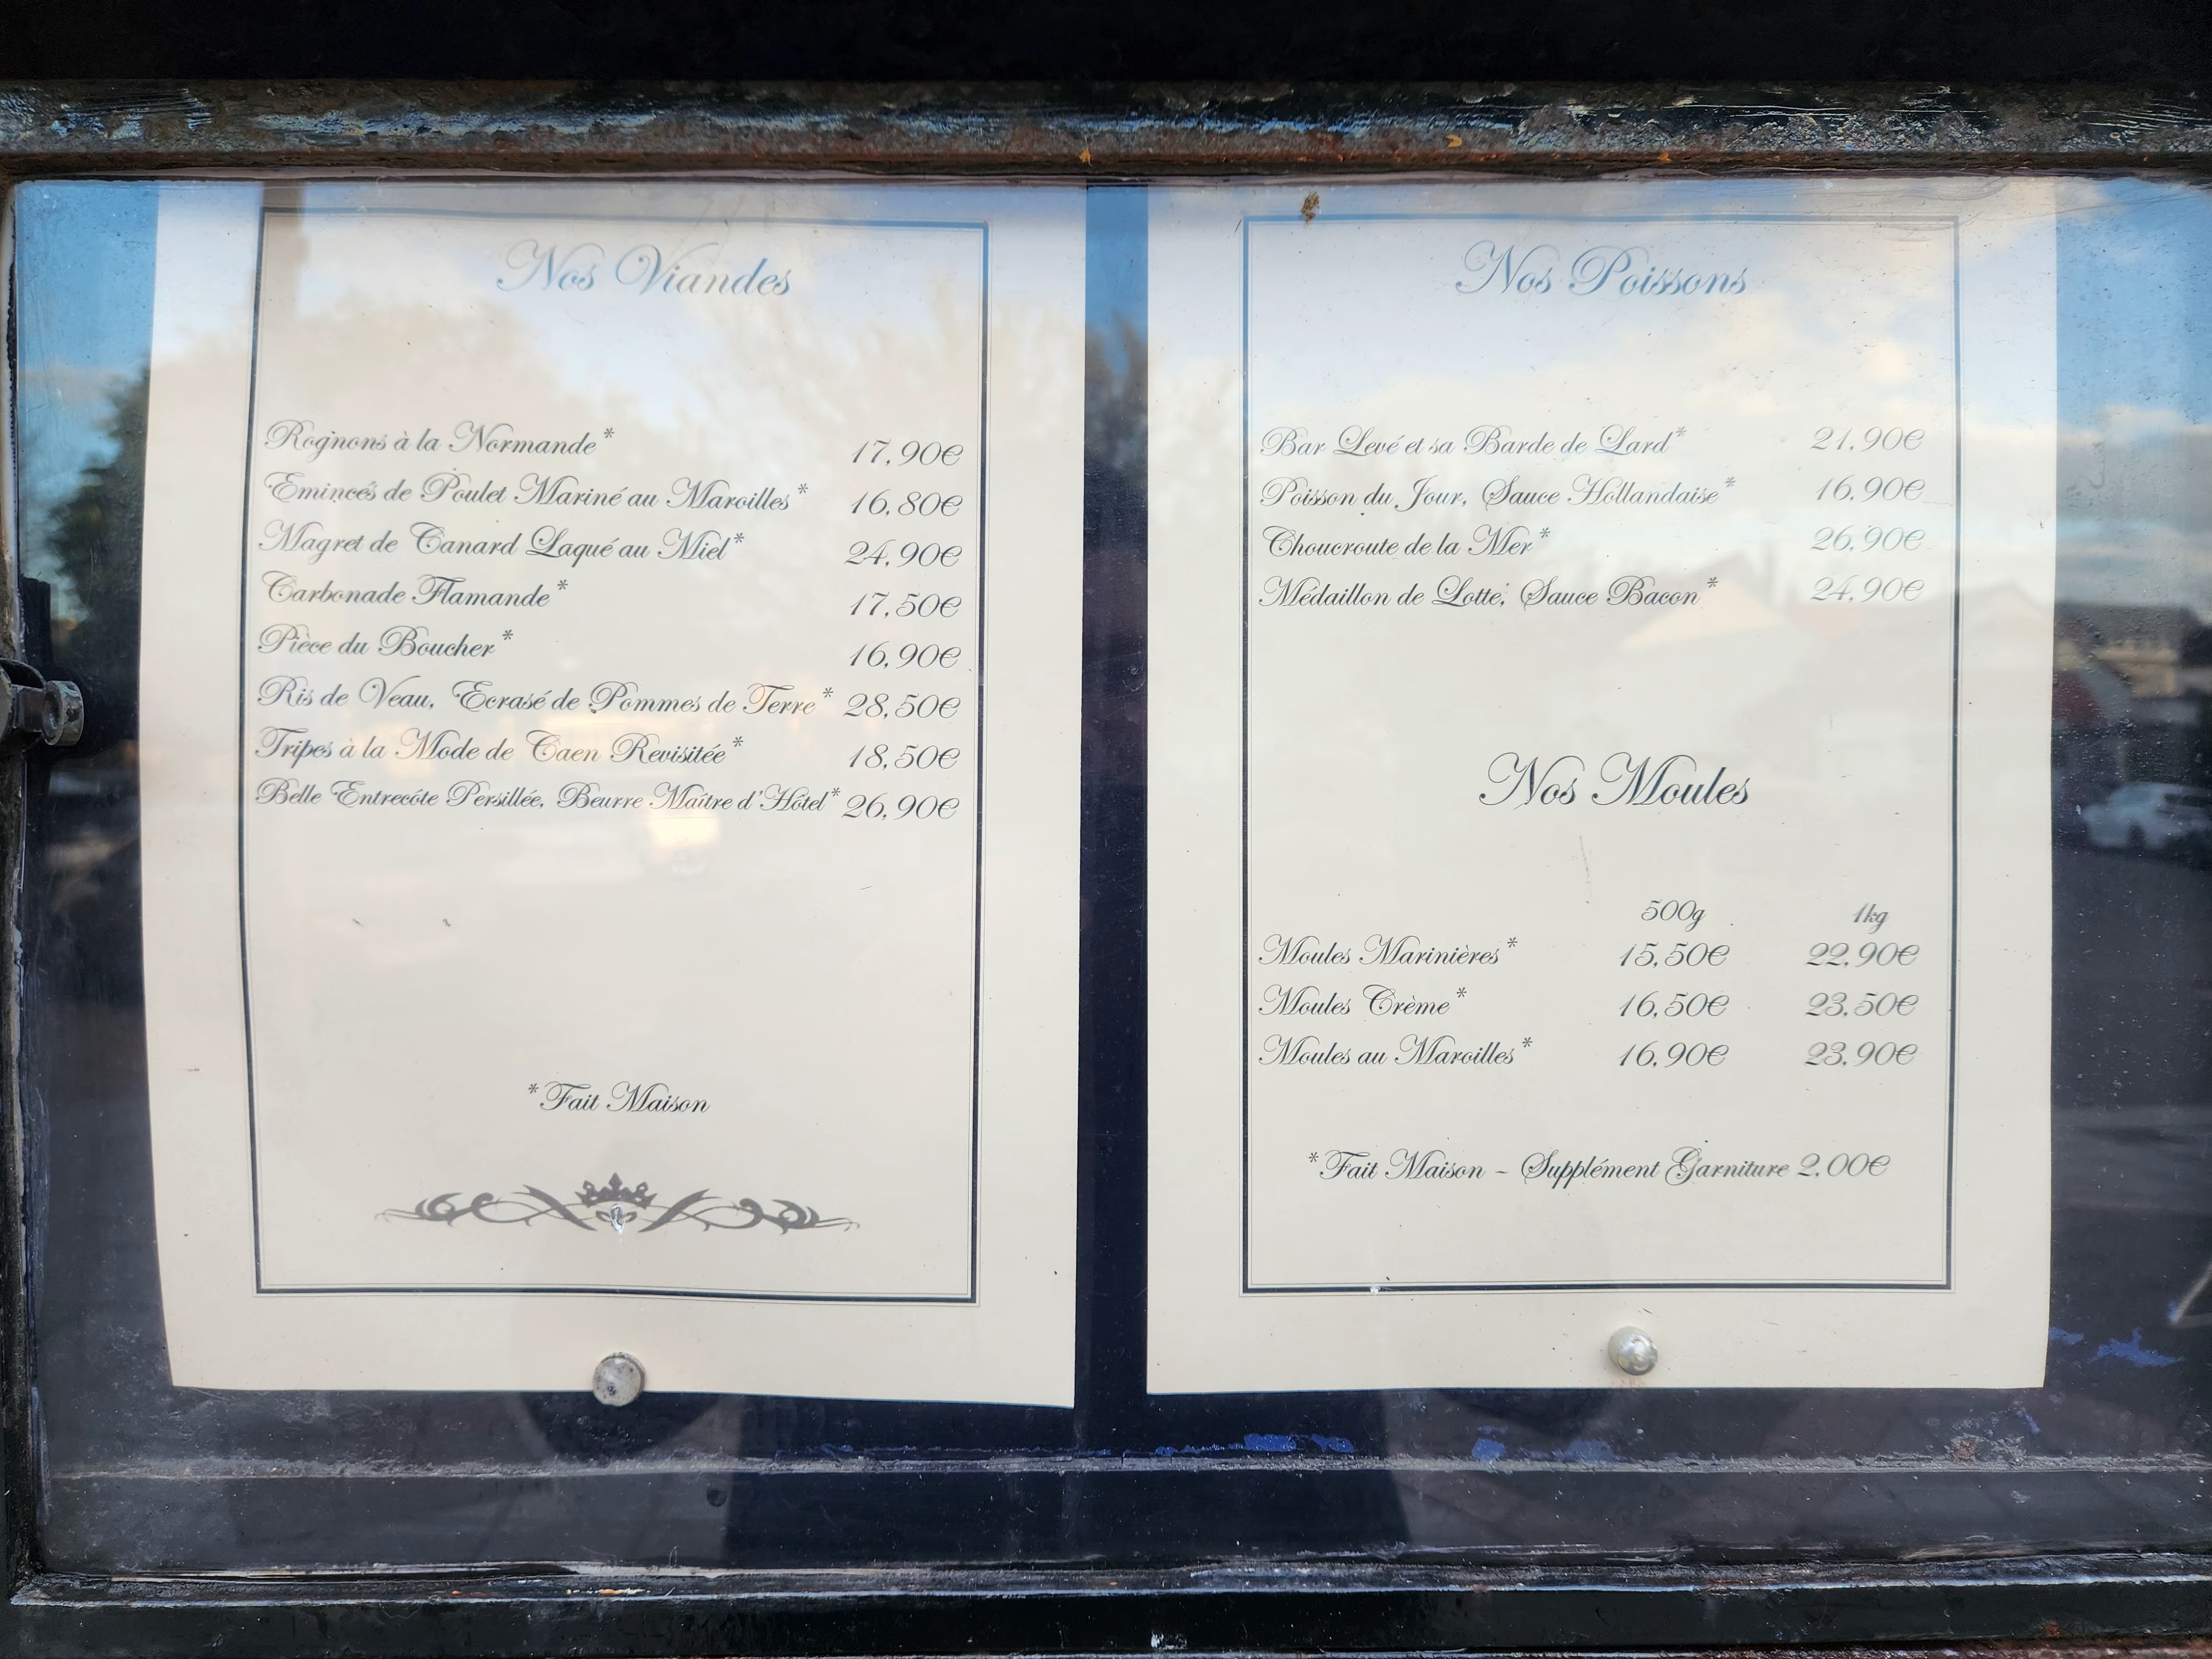 Nos Viandes
Rognons à la Normande* 17,90€
Emincés de Poulet Mariné au Maroilles* 16,80€
Magret de Canard Laqué au Miel* 24,90€
Carbonade Flamande* 17,50€
Pièce du Boucher* 16,90€
Ris de Veau, Ecrasé de Pommes de Terre* 28,50€
Tripes à la Mode de Caen Revisitée* 18,50€
Belle Entrecôte Persillée, Beurre Maître d'Hôtel* 26,90€
*Fait Maison
Nos Poissons
Bar Levé et sa Barde de Lard* 21,90€
Poisson du Jour, Sauce Hollandaise* 16,90€
Choucroute de la Mer* 26,90€
Médaillon de Lotte, Sauce Bacon* 24,90€
Nos Moules
500g 1kg
Moules Marinières* 15,50€ 22,90€
Moules Crème* 16,50€ 23,50€
Moules au Maroilles* 16,90€ 23,90€
*Fait Maison - Supplément Garniture 2,00€